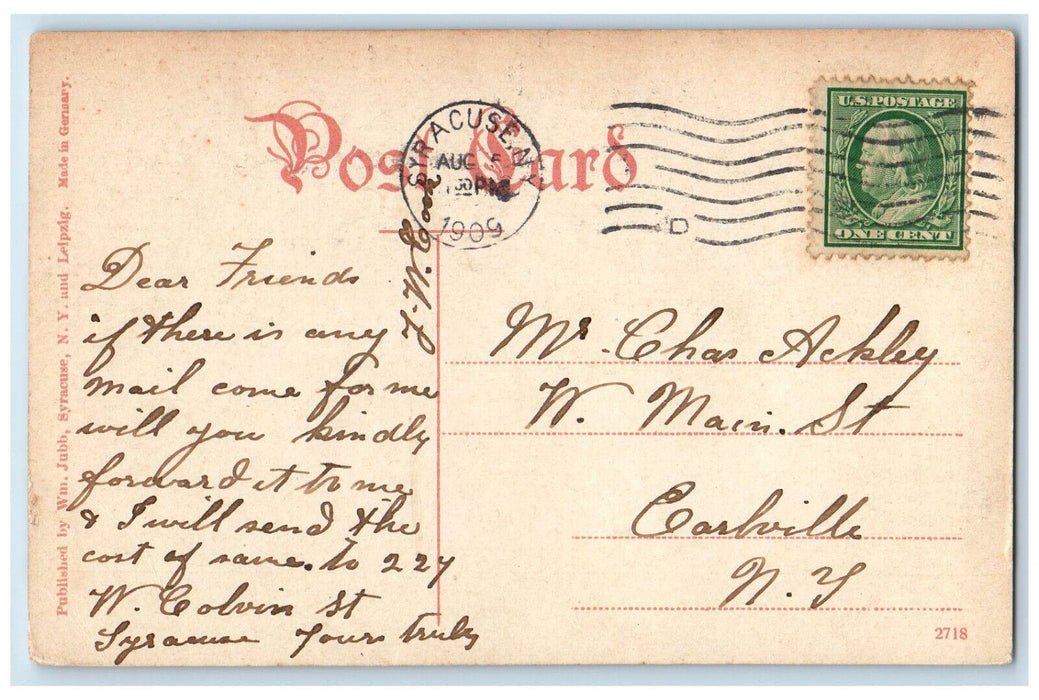 Post Card
SYRACUSE, N.Y.
AUG 5
30 PM
1909
D
U.S. POSTAGE
ONE CENT
Dear Friends
if there is any
mail come for me
will you kindly
forward it to me
& I will send the
cost of same. to 227
W. Colvin St
Syracuse Yours truly
Mr. Chas Ackley
W. Main. St
Earlville
N. Y
Published by Wm. Jubb, Syracuse, N. Y. and Leipzig. Made in Germany.
2718